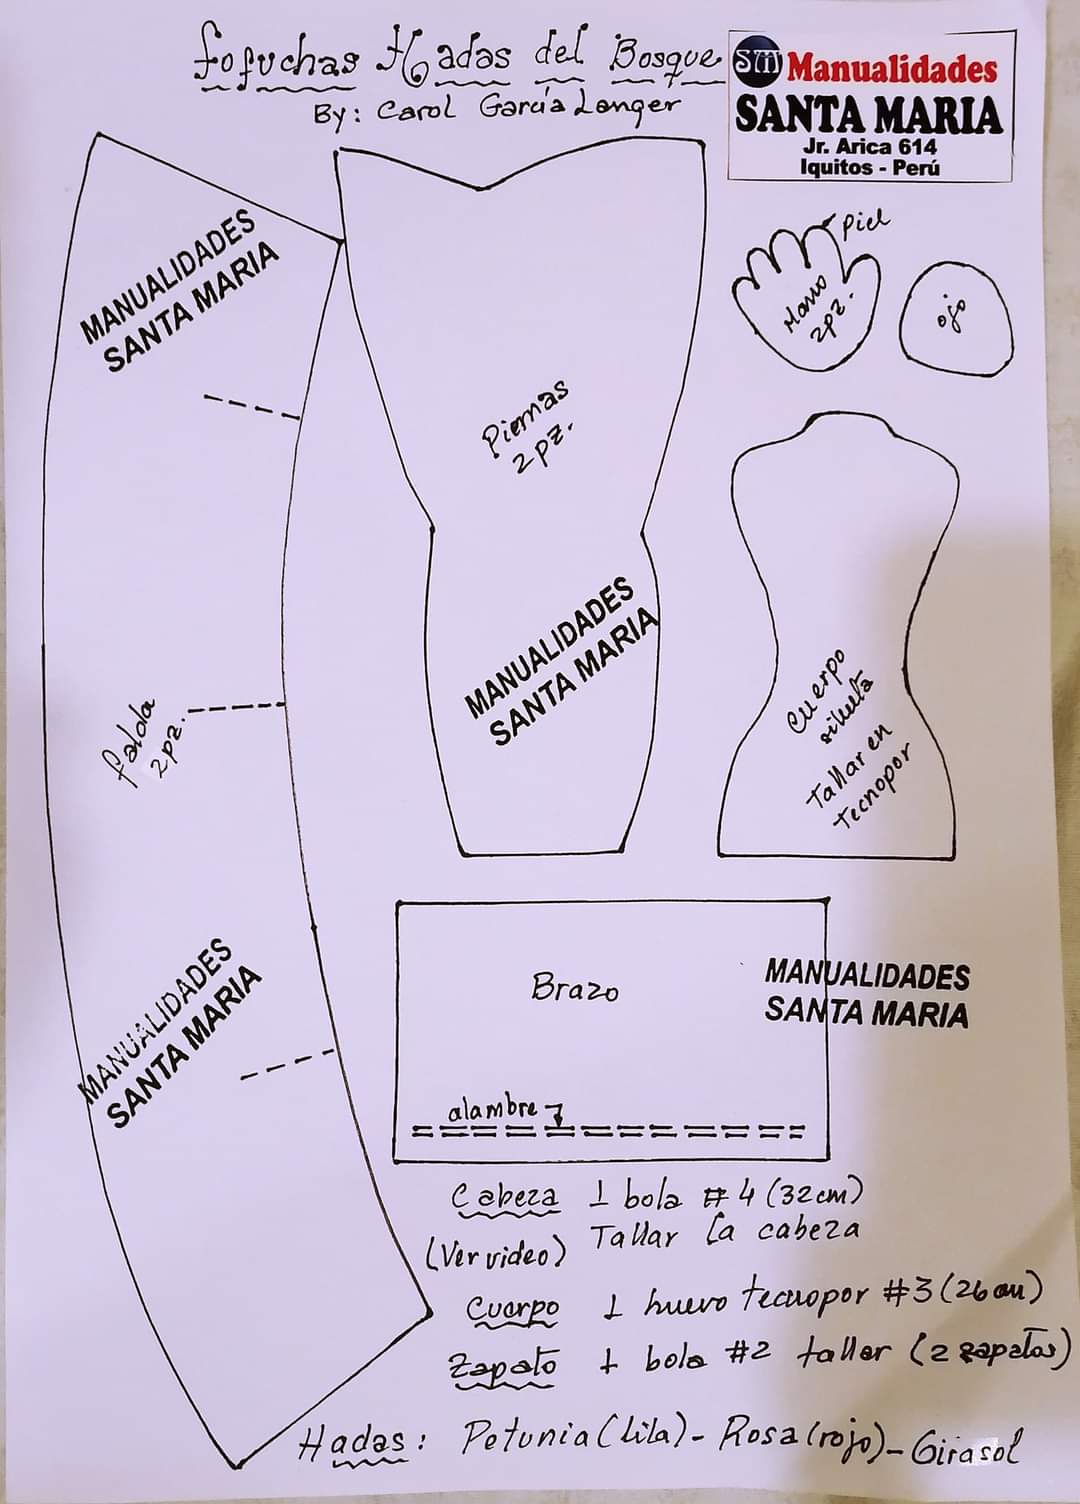 Fofuchas Hadas del Bosque
By: Carol García Langer
SM Manualidades
SANTA MARIA
Jr. Arica 614
Iquitos - Perú
MANUALIDADES
SANTA MARIA
Piel
Mano
2pz.
ojo
Piernas
2pz.
MANUALIDADES
SANTA MARIA
falda
2pz.
Cuerpo
silueta
Tallar en
tecnopor
MANUALIDADES
SANTA MARIA
Brazo
MANUALIDADES
SANTA MARIA
alambre
Cabeza 1 bola #4 (32cm)
(Ver video) Tallar la cabeza
Cuerpo 1 huevo tecnopor #3 (26cm)
Zapato 1 bola #2 tallar (2 zapatos)
Hadas: Petunia (lila) - Rosa (rojo) - Girasol